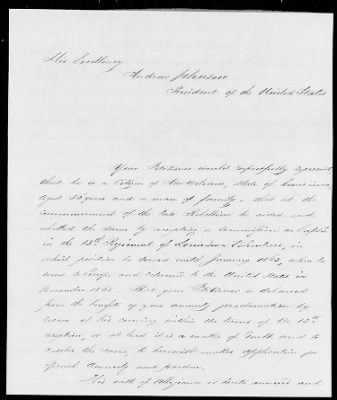 His Excellency
Andrew Johnson
President of the United States
Your Petitioner would respectfully represent
that he is a Citizen of New Orleans, State of Louisiana,
aged 35 years and a man of family - that at the
commencement of the late Rebellion he aided and
abetted the same by accepting a Commission as Captain
in the 13th Regiment of Louisiana Volunteers, in
which position he served until January 1863, when he
went to Europe and returned to the United States in
November 1865. That your Petitioner is debarred
from the benefits of your amnesty proclamation by
reason of his coming within the terms of the
exception, or at least it is a matter of doubt and to
resolve the same, he herewith makes application for
special Amnesty and pardon.
His oath of Allegiance is hereto annexed and